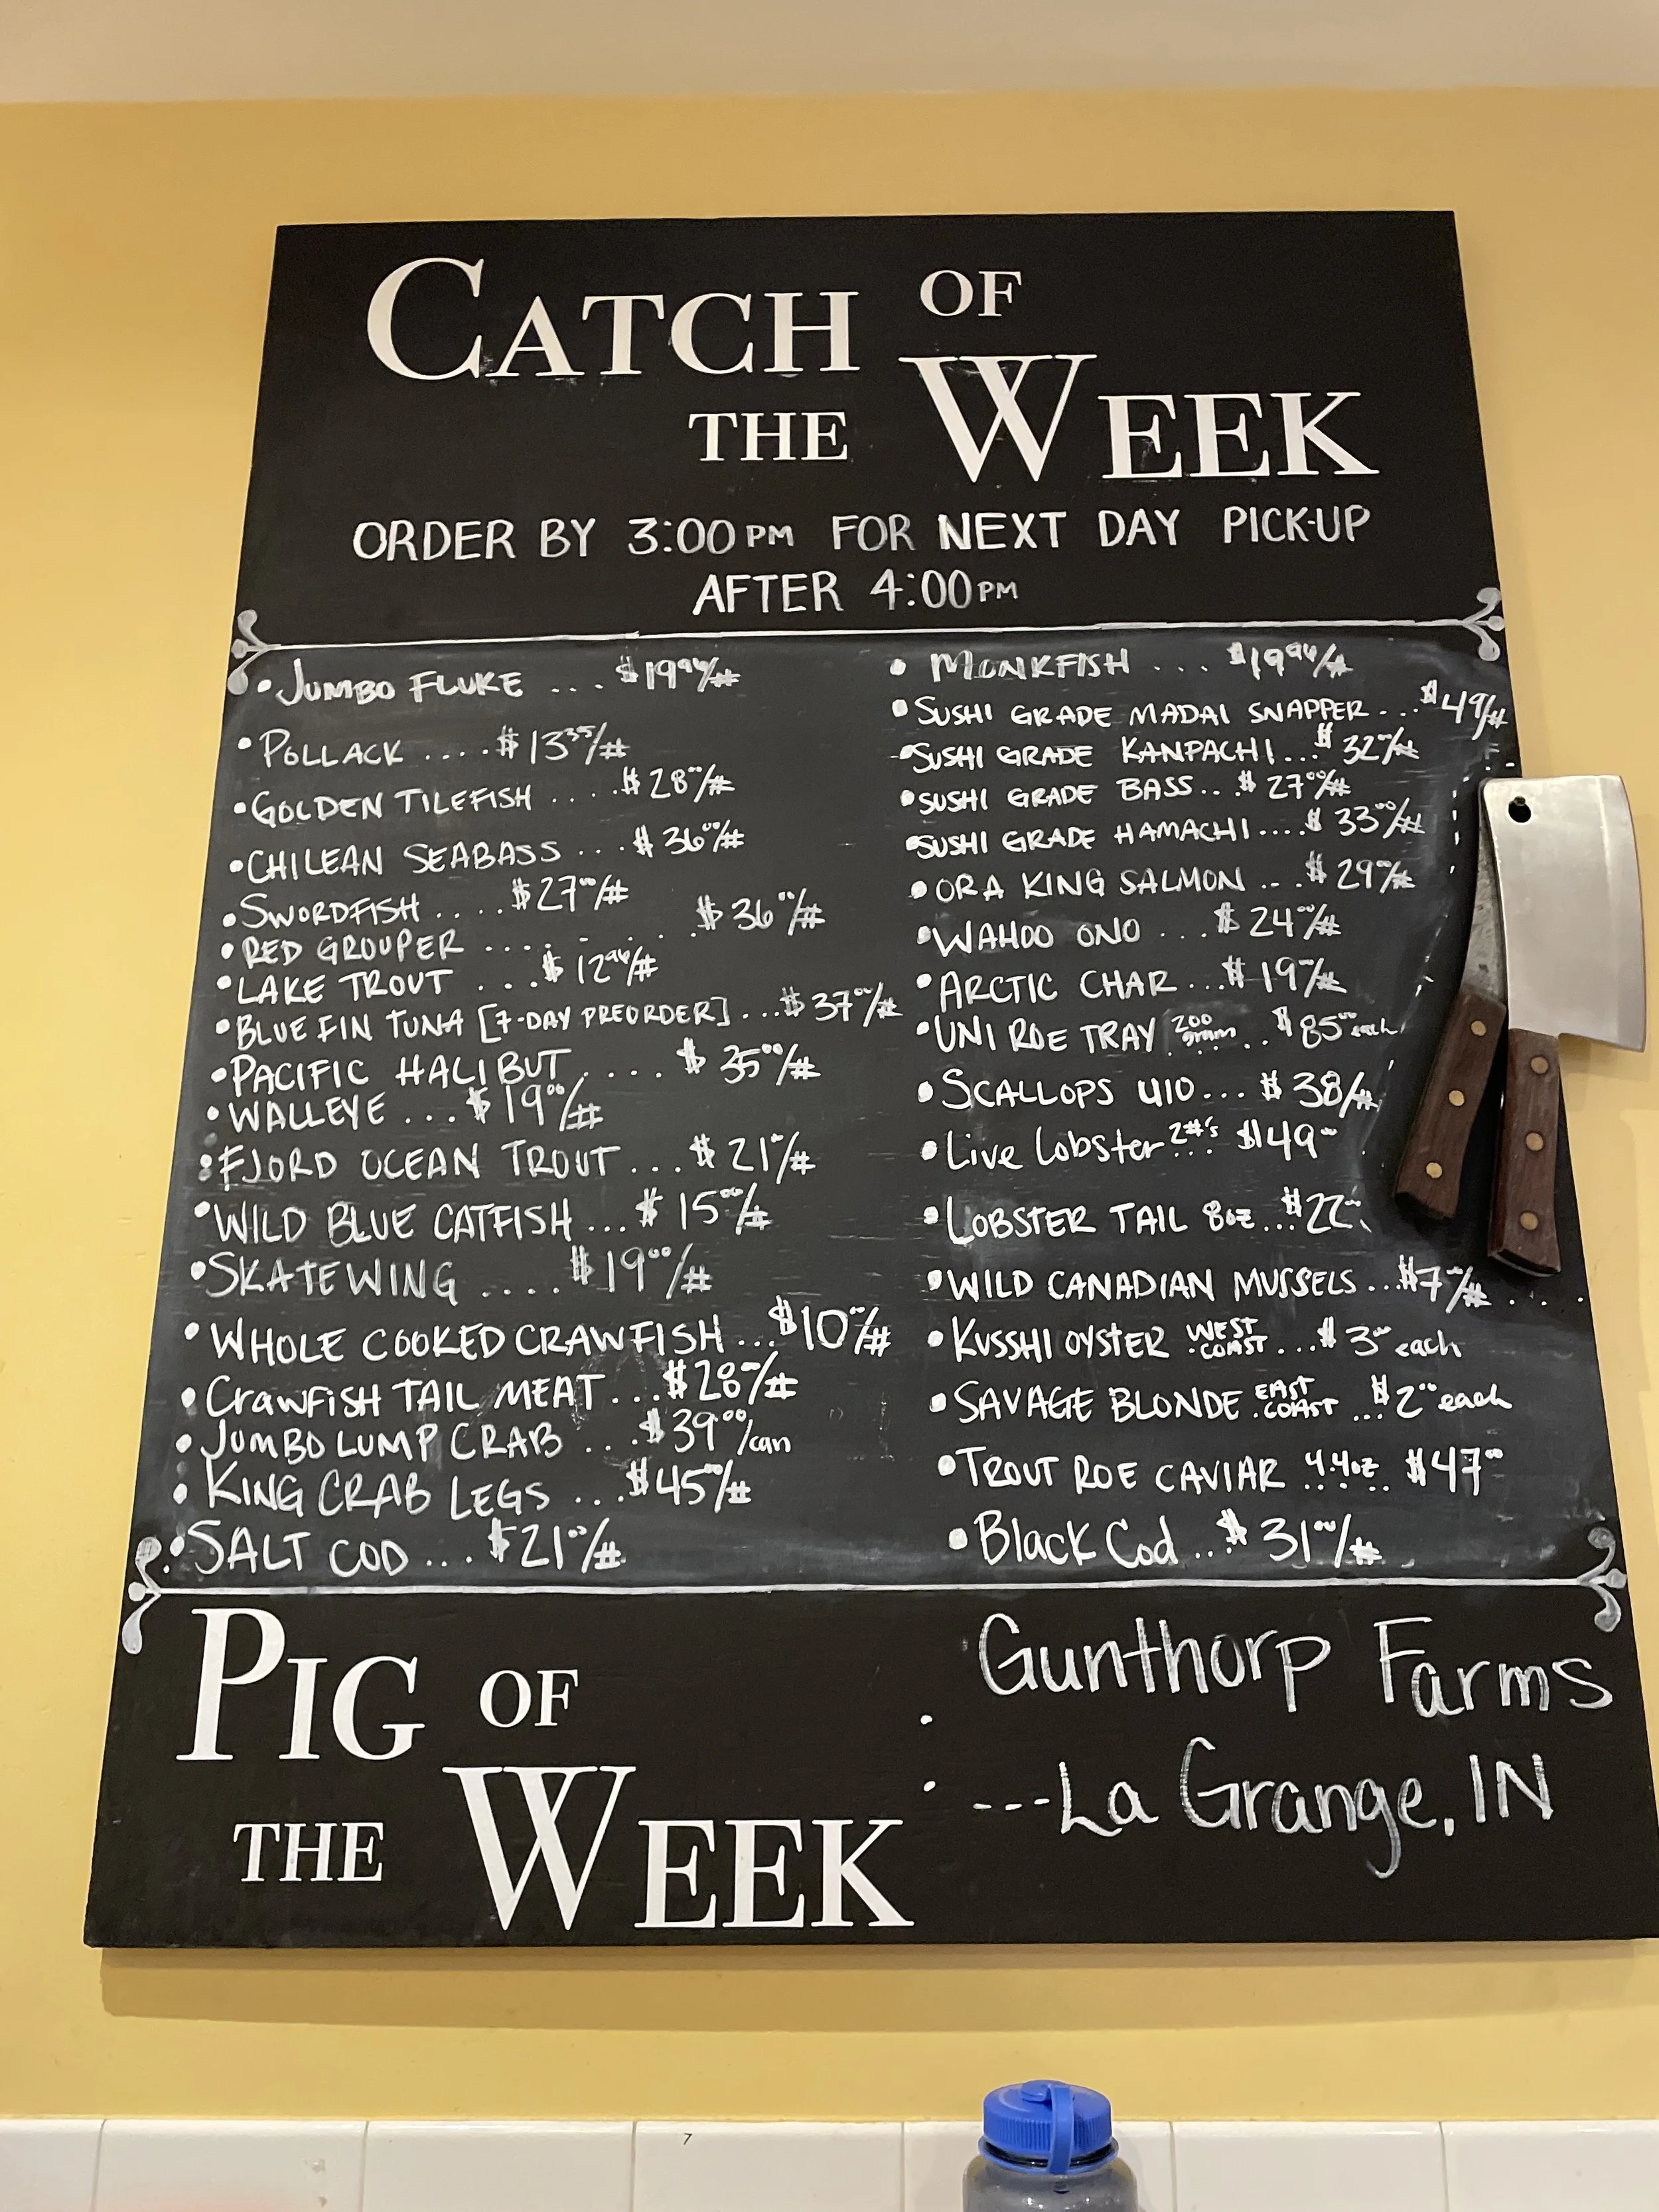 CATCH OF
THE WEEK
ORDER BY 3:00PM FOR NEXT DAY PICK-UP
AFTER 4:00PM
• JUMBO FLUKE ... $19.96/#
• POLLACK .... $13.35/#
• GOLDEN TILEFISH .... $28.00/#
• CHILEAN SEABASS ... $36.00/#
• SWORDFISH .... $27.00/#
• RED GROUPER ....... $36.00/#
• LAKE TROUT ... $12.96/#
• BLUE FIN TUNA [7-DAY PREORDER] ... $37.00/#
• PACIFIC HALIBUT .... $35.00/#
• WALLEYE ... $19.00/#
• FJORD OCEAN TROUT ... $21.00/#
• WILD BLUE CATFISH ... $15.00/#
• SKATEWING .... $19.00/#
• WHOLE COOKED CRAWFISH ... $10.00/#
• CRAWFISH TAIL MEAT ... $28.00/#
• JUMBO LUMP CRAB ... $39.00/can
• KING CRAB LEGS ... $45.00/#
• SALT COD ... $21.00/#
• MONKFISH ... $19.96/#
• SUSHI GRADE MADAI SNAPPER ... $49/#
• SUSHI GRADE KANPACHI ... $32.00/#
• SUSHI GRADE BASS .. $27.00/#
• SUSHI GRADE HAMACHI .... $33.00/#
• ORA KING SALMON ... $29.00/#
• WAHOO ONO ... $24.00/#
• ARCTIC CHAR ... $19.00/#
• UNI ROE TRAY 200 gram .. $85.00 each
• SCALLOPS U10 ... $38/#
• Live Lobster 2#'s ... $49.00
• LOBSTER TAIL 8oz ... $22.00
• WILD CANADIAN MUSSELS ... $7.00/#
• KUSSHI OYSTER WEST COAST ... $3.00 each
• SAVAGE BLONDE EAST COAST ... $2.00 each
• TROUT ROE CAVIAR 4.4oz $47.00
• Black Cod ... $31.00/#
PIG OF
THE WEEK
Gunthorp Farms
---La Grange, IN